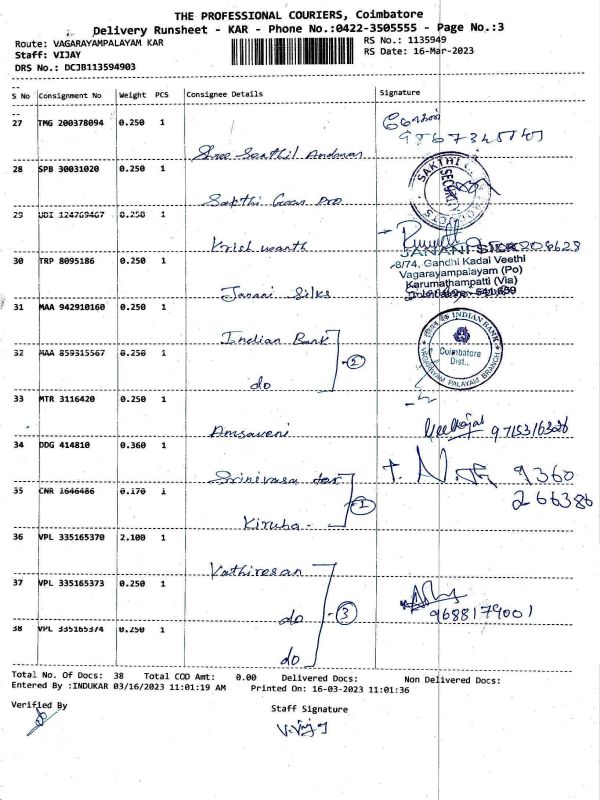 THE PROFESSIONAL COURIERS, Coimbatore
Delivery Runsheet - KAR - Phone No.:0422-3505555 - Page No.:3
Route: VAGARAYAMPALAYAM KAR
RS No.: 1135949
Staff: VIJAY
RS Date: 16-Mar-2023
DRS No.: DCJB113594903
S No Consignment No Weight PCS Consignee Details Signature
27 TMG 200378094 0.250 1
Shree Senthil Andavar
28 SPB 30031020 0.250 1
SAKTHI
SECURITY
Sapthi Green Pro
29 UDI 124769467 0.250 1
Krishwanth
30 TRP 8095186 0.250 1
JANANI SILKS
8/74, Gandhi Kadai Veethi
Vagarayampalayam (Po)
Karumathampatti (Via)
Janani Silks
31 MAA 942910160 0.250 1
Indian Bank
32 MAA 859315567 0.250 1
2
INDIAN BANK
Coimbatore
Dist.,
VAGARAYAM PALAYAM BRANCH
do
33 MTR 3116420 0.250 1
Amsaveni
9715316326
34 DDG 414810 0.360 1
Srinivasa
9360
266386
35 CNR 1646486 0.170 1
Kiruba
36 VPL 335165370 2.100 1
Kathiresan
37 VPL 335165373 0.250 1
do
3
9688179001
38 VPL 335165374 0.250 1
do
Total No. Of Docs: 38 Total COD Amt: 0.00 Delivered Docs: Non Delivered Docs:
Entered By :INDUKAR 03/16/2023 11:01:19 AM Printed On: 16-03-2023 11:01:36
Verified By
Staff Signature